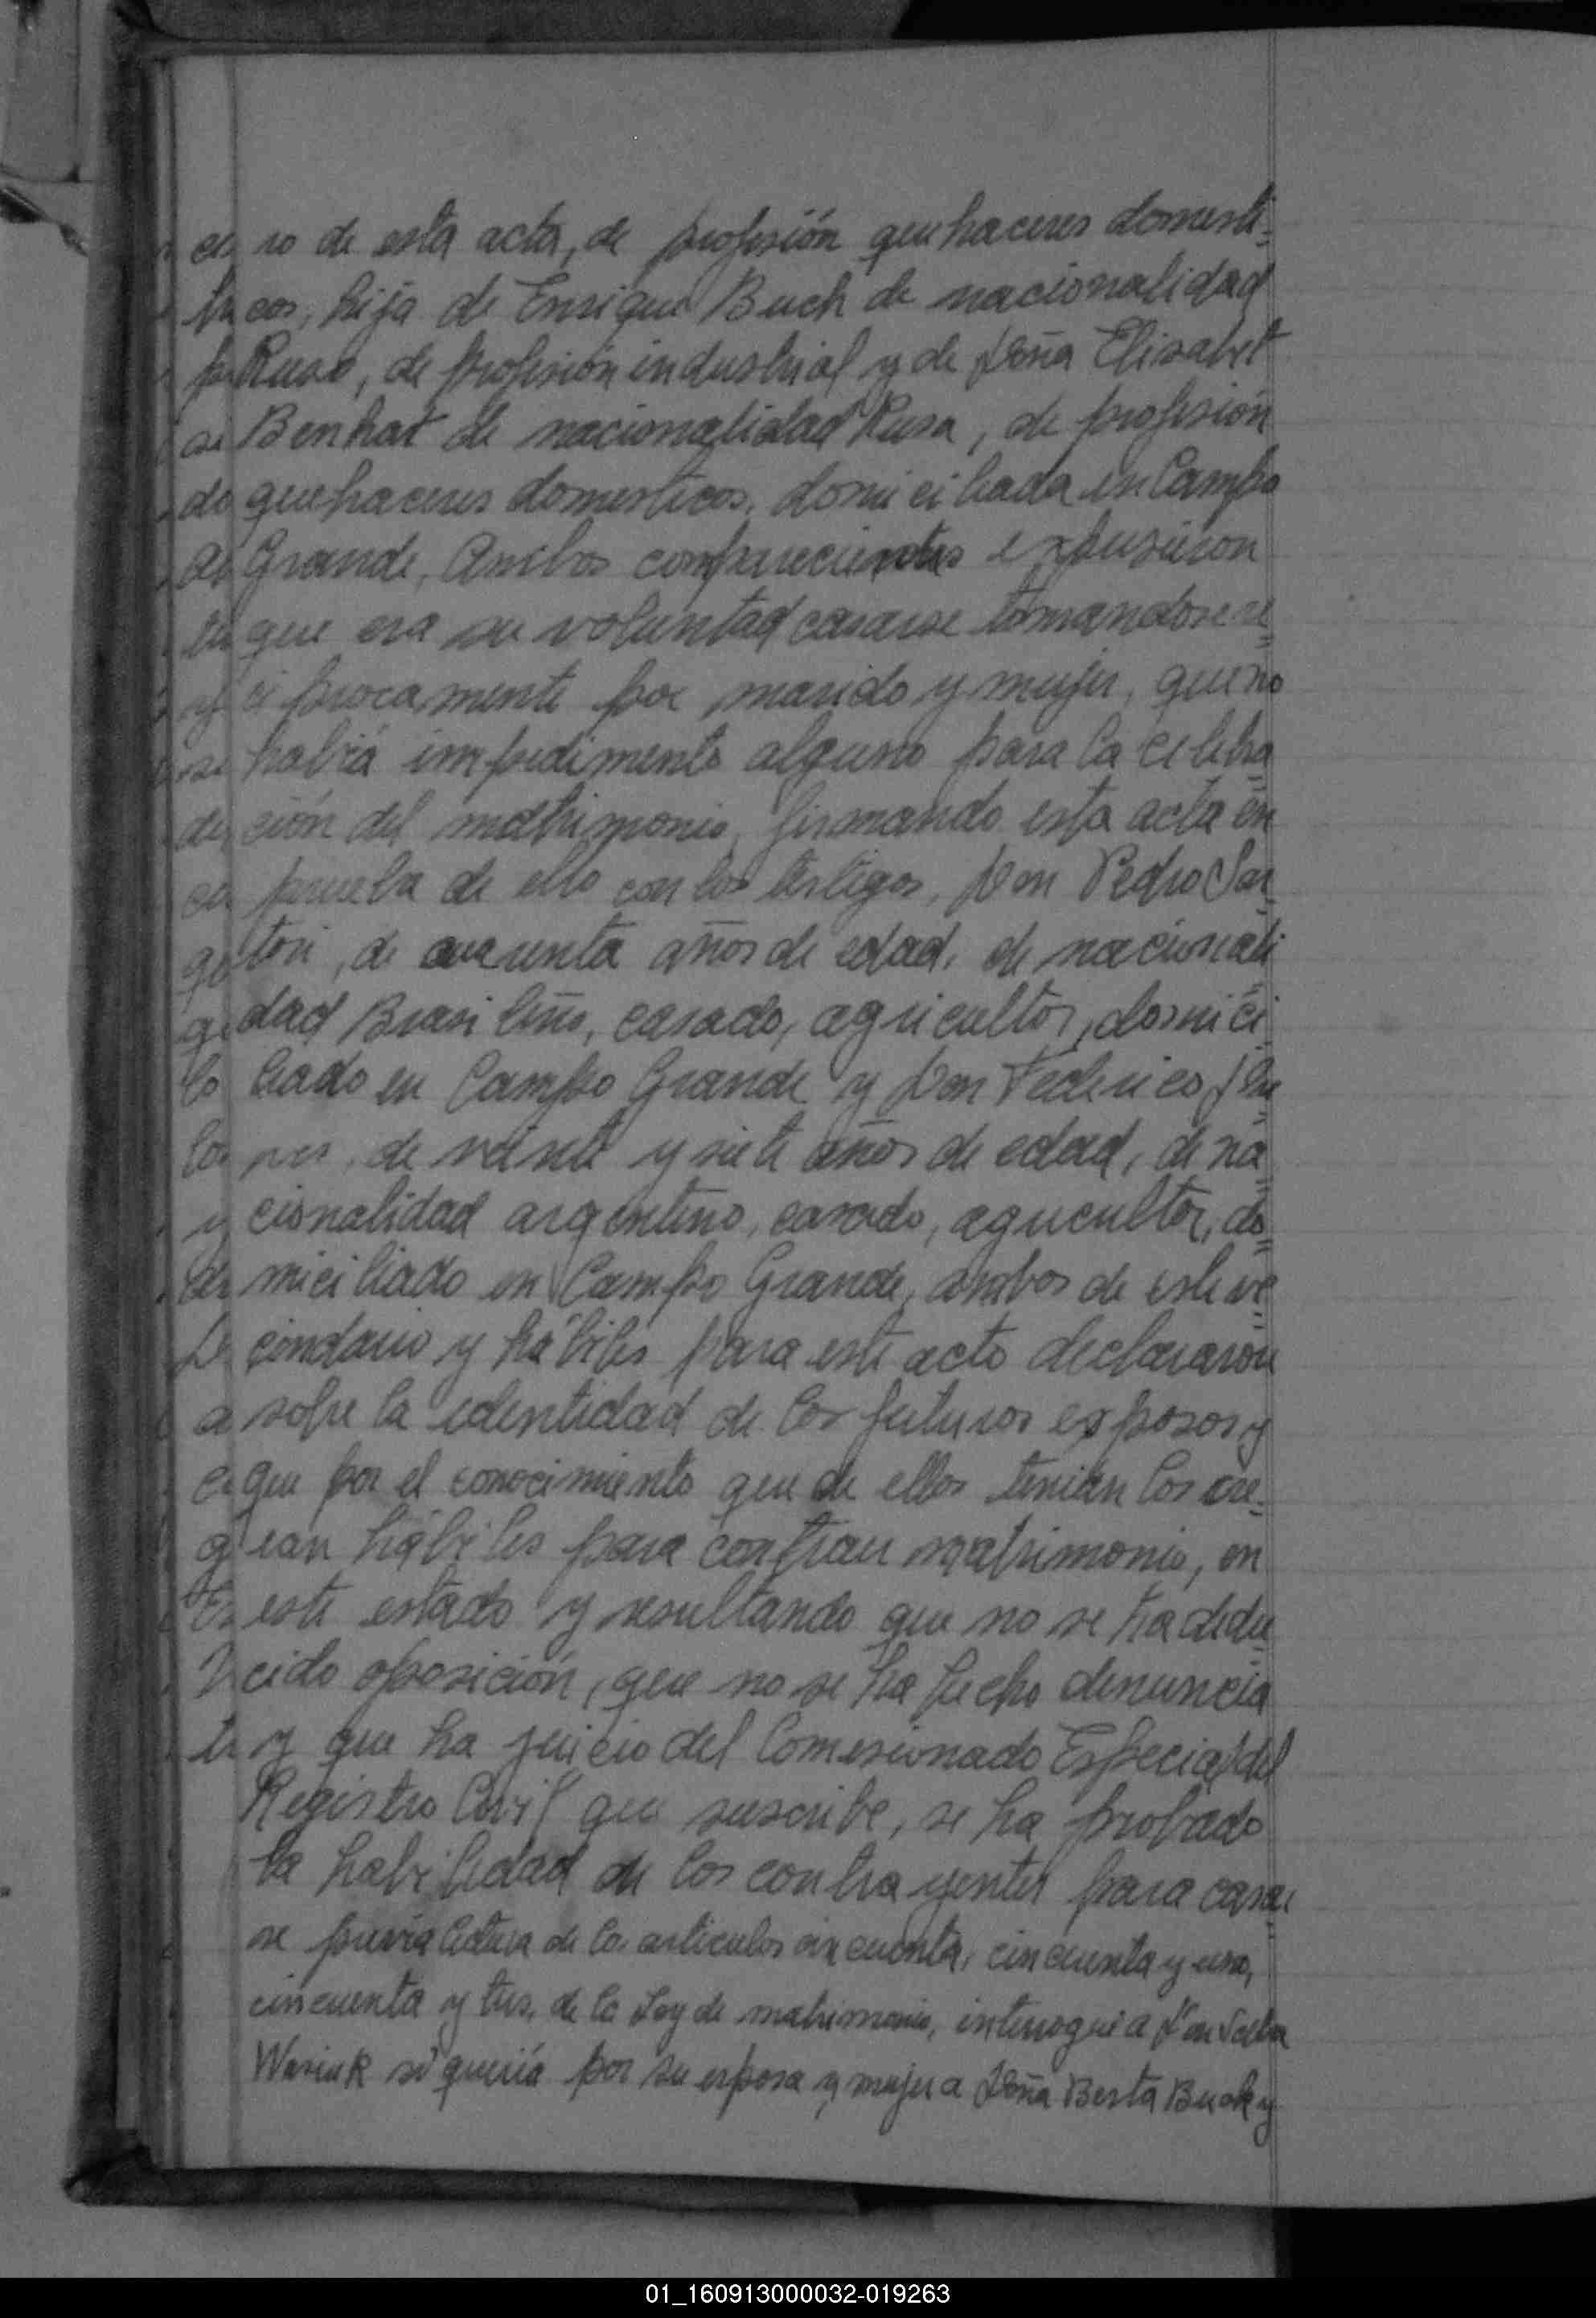 ro de esta acta, de profesión quehaceres domesti-
cos, hija de Enrique Buch de nacionalidad
Ruso, de profesión industrial y de Doña Elisabet
Benhat de nacionalidad Rusa, de profesión
quehaceres domesticos, domiciliada en Campo
Grande, Ambos comparecientes expusieron
que era su voluntad casarse tomandose re=
ciprocamente por marido y mujer, que no
habiá impedimento alguno para la celebra=
ción del matrimonio, firmando esta acta en
prueba de ello con los testigos, Don Pedro Sar=
tori, de cuarenta años de edad, de nacionali=
dad Brasileño, casado, agricultor, domici=
liado en Campo Grande y Don Federico
de veinte y siete años de edad, de na=
cionalidad argentino, casado, agricultor, do=
miciliado en Campo Grande, ambos de este ve=
cindario y hábiles para este acto declararon
sobre la identidad de los futuros esposos y
que por el conocimiento que de ellos tenian los cre=
ian hábiles para contraer matrimonio, en
este estado y resultando que no se ha dedu=
cido oposición, que no se ha hecho denuncia
y que ha juicio del Comisionado Especial del
Registro Civil que suscribe, se ha probado
la habilidad de los contrayentes para casar=
se previa lectura de los articulos cincuenta, cincuenta y uno,
cincuenta y tres, de la Ley de matrimonio, interrogué a Don
Wasiuk si queriá por su esposa y mujer a Doña Berta Buch y
01_160913000032-019263